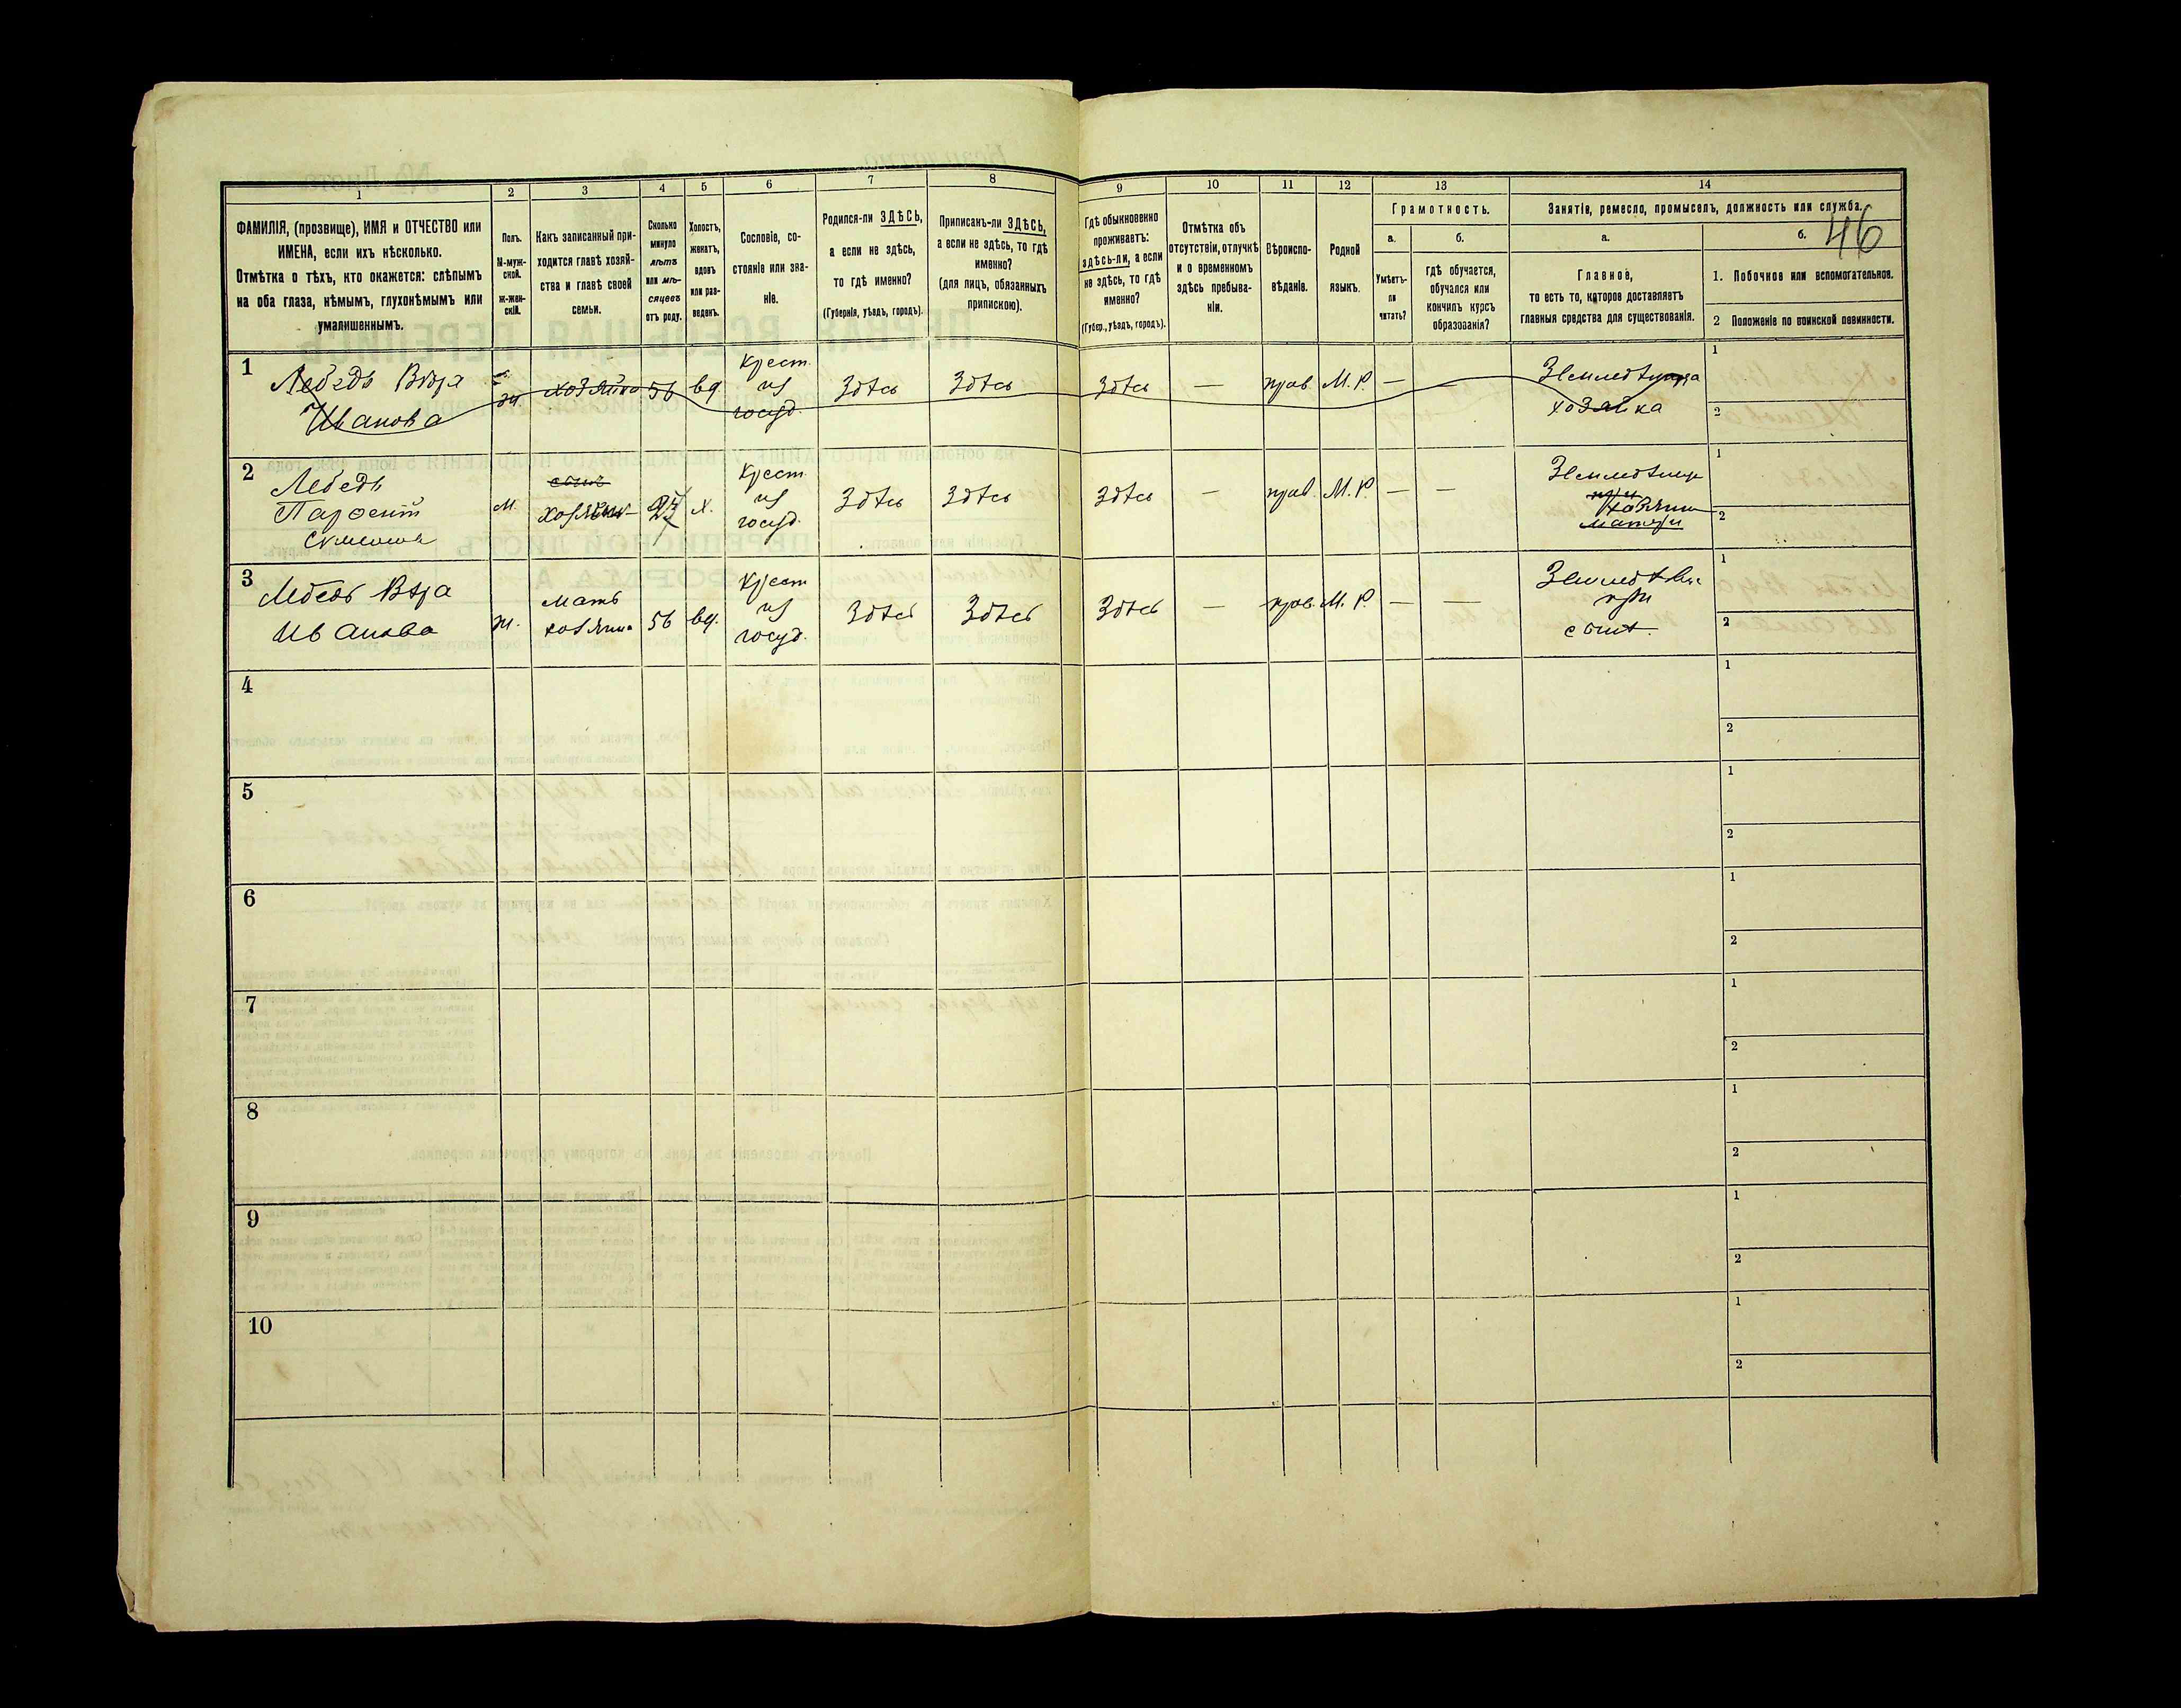 46
1
2
3
4
5
6
7
8
9
10
11
12
13
14
ФАМИЛІЯ, (прозвище), ИМЯ и ОТЧЕСТВО или
ИМЕНА, если ихъ нѣсколько.
Отмѣтка о тѣхъ, кто окажется: слѣпымъ
на оба глаза, нѣмымъ, глухонѣмымъ или
умалишеннымъ.
Полъ.
М-муж-
ской.
ж-жен-
скій.
Какъ записанный при-
ходится главѣ хозяй-
ства и главѣ своей
семьи.
Сколько
минуло
лѣтъ
или мѣ-
сяцевъ
отъ роду.
Холостъ,
женатъ,
вдовъ
или раз-
веденъ.
Сословіе, со-
стояніе или зва-
ніе.
Родился-ли ЗДѢСЬ,
а если не здѣсь,
то гдѣ именно?
(Губернія, уѣздъ, городъ).
Приписанъ-ли ЗДѢСЬ,
а если не здѣсь, то гдѣ
именно?
(для лицъ, обязанныхъ
припискою).
Гдѣ обыкновенно
проживаетъ:
здѣсь-ли, а если
не здѣсь, то гдѣ
именно?
(Губер., уѣздъ, городъ).
Отмѣтка объ
отсутствіи, отлучкѣ
и о временномъ
здѣсь пребыва-
ніи.
Вѣроиспо-
вѣданіе.
Родной
языкъ.
Грамотность.
а.
б.
Умѣетъ-
ли
читать?
гдѣ обучается,
обучался или
кончилъ курсъ
образованія?
Занятіе, ремесло, промыселъ, должность или служба.
а.
б.
Главное,
то есть то, которое доставляетъ
главныя средства для существованія.
1. Побочное или вспомогательное.
2 Положеніе по воинской повинности.
1
Лебедь Вѣра
Иванова
ж
хозяйка
56
вд
крест.
из
госуд.
Здѣсь
Здѣсь
Здѣсь
—
прав.
М. Р.
—
—
хозяйка
1
2
2
Лебедь
м.
сынъ
х.
крест.
из
госуд.
Здѣсь
Здѣсь
Здѣсь
—
прав.
М. Р.
—
—
при
матери
1
2
3
Лебедь Вѣра
Иванова
ж.
мать
хозяина
56
вд.
крест
из
госуд.
Здѣсь
Здѣсь
Здѣсь
—
прав.
М. Р.
—
—
при
сынѣ.
1
2
4
1
2
5
1
2
6
1
2
7
1
2
8
1
2
9
1
2
10
1
2